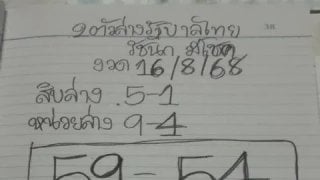 2ตัวล่างรัฐบาลไทย
วิชนีก มีโชค
งวด 16/8/68
สิบล่าง .5-1
หน่วยล่าง 9-4
59-54